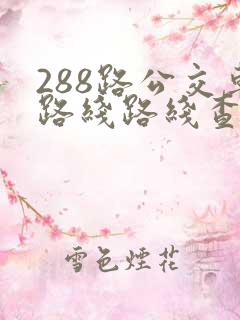 288路公交
路线路线查
雪色煙花